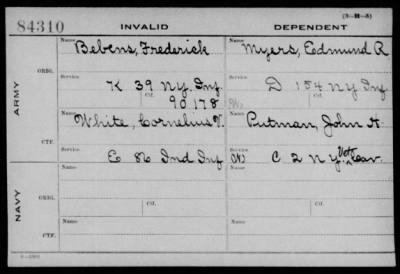 84310 INVALID DEPENDENT (3-H-5)
Name Name
Bebens, Frederick Myers, Edmund R
ORIG. Service Service
K 39 N.Y. Inf D 154 N Y Inf
Ctf. Ctf.
90178
ARMY
Name Name
White, Cornelius V. Putman, John H.
CTF. Service Service
E 86 Ind Inf (W) C 2 N Y Vet Cav.
Name Name
ORIG.
Ctf. Ctf.
NAVY
Name Name
CTF.